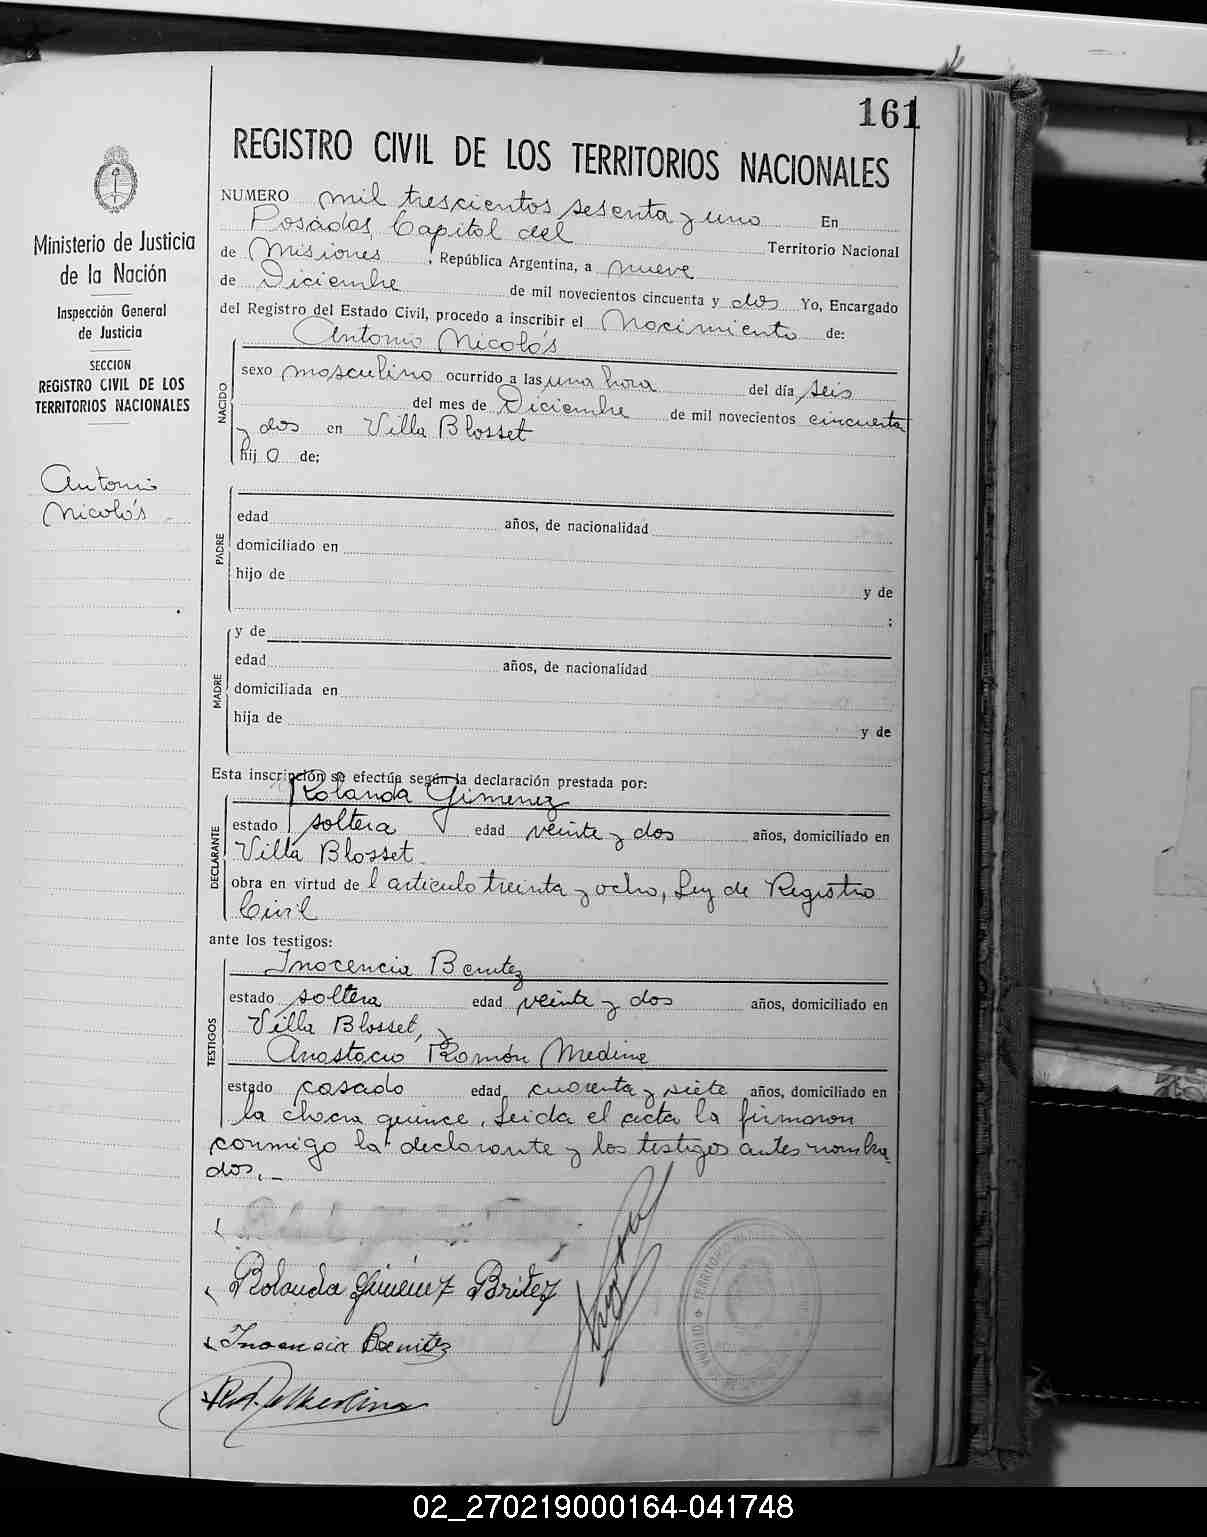 161
REGISTRO CIVIL DE LOS TERRITORIOS NACIONALES
Ministerio de Justicia
de la Nación
Inspección General
de Justicia
SECCION
REGISTRO CIVIL DE LOS
TERRITORIOS NACIONALES
Antonio
Nicolás
NUMERO mil trescientos sesenta y uno En
Posadas, Capital del Territorio Nacional
de Misiones, República Argentina, a nueve
de Diciembre de mil novecientos cincuenta y dos Yo, Encargado
del Registro del Estado Civil, procedo a inscribir el Nacimiento de:
Antonio Nicolás
NACIDO
sexo masculino ocurrido a las una hora del día seis
del mes de Diciembre de mil novecientos cincuenta
y dos en Villa Blosset
hijo de;
PADRE
edad años, de nacionalidad
domiciliado en
hijo de y de
;
MADRE
y de
edad años, de nacionalidad
domiciliada en
hija de y de
Esta inscripción se efectúa según la declaración prestada por:
Rolanda Gimenez
DECLARANTE
estado soltera edad veinte y dos años, domiciliado en
Villa Blosset
obra en virtud del articulo treinta y ocho, Ley de Registro
Civil
ante los testigos:
TESTIGOS
Inocencia Benitez
estado soltera edad veinte y dos años, domiciliado en
Villa Blosset, y
Anastacio Ramón Medina
estado casado edad cuarenta y siete años, domiciliado en
la chacra quince. Leida el acta la firmaron
conmigo la declarante y los testigos antes nombra
dos.
Rolanda Giménez Britez
Inocencia Benitez
02_270219000164-041748